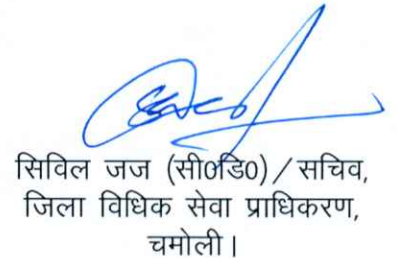 सिविल जज (सी0डि0) / सचिव,
जिला विधिक सेवा प्राधिकरण,
चमोली।